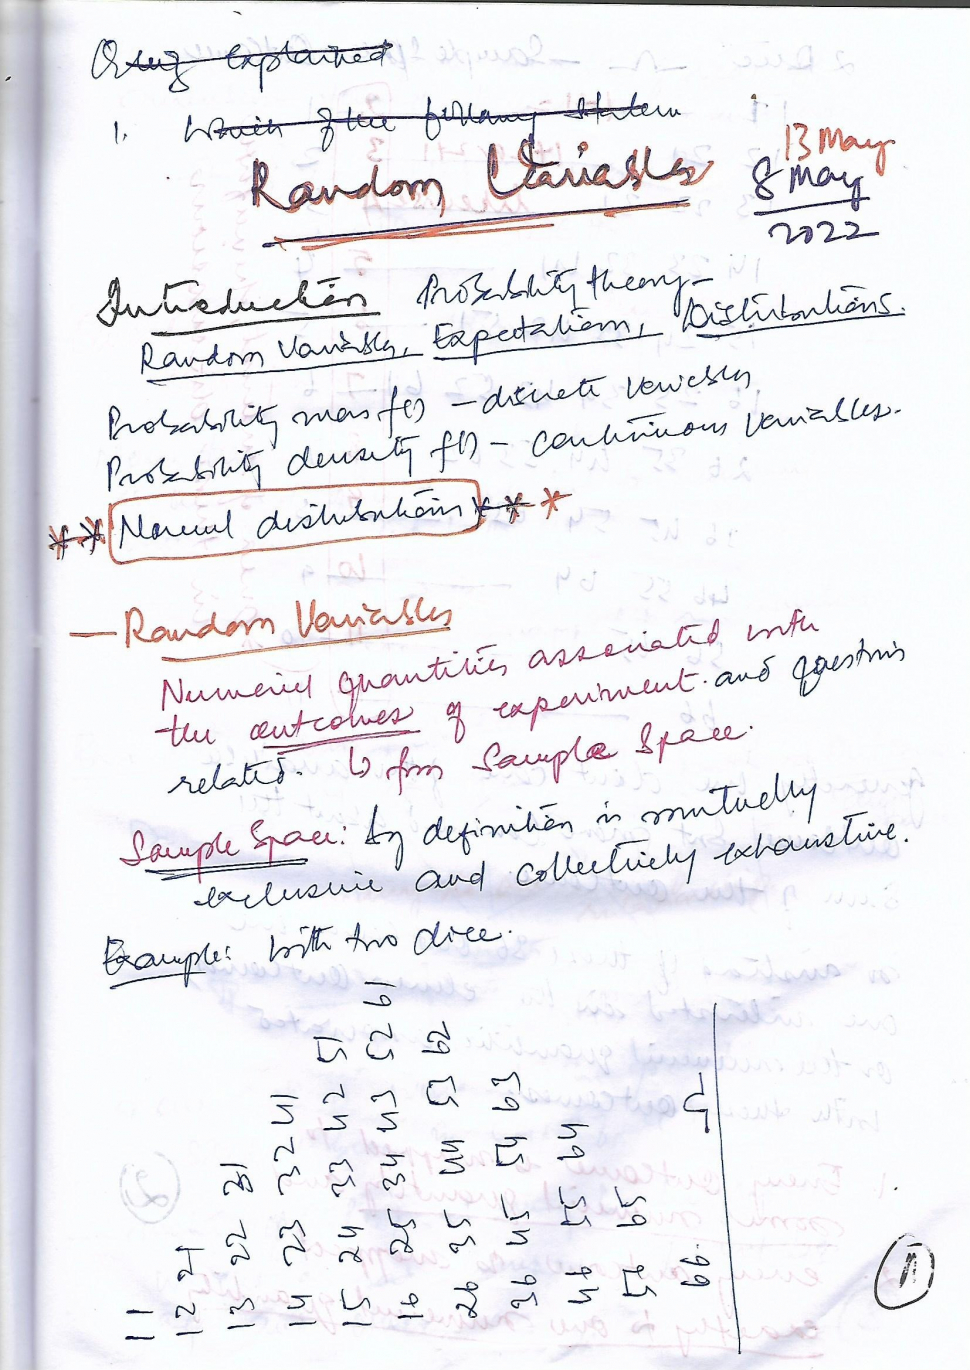 explained
1. Which of the following statem
Random Variables
13 May
8 May
2022
Introduction Probability theory -
Random Variables, Expectations, Distributions.
Probability mass f() - discrete variables
Probability density f() - continuous variables.
** Normal distributions ***
— Random Variables
Numerical quantities associated with
the outcomes of experiment. and questions
related. ↳ from Sample Space.
Sample Space: by definition is mutually
exclusive and collectively exhaustive.
Example: With two dice.
11
12 21
13 22 31
14 23 32 41
15 24 33 42 51
16 25 34 43 52 61
26 35 44 53 62
36 45 54 63
46 55 64
56 65
66.